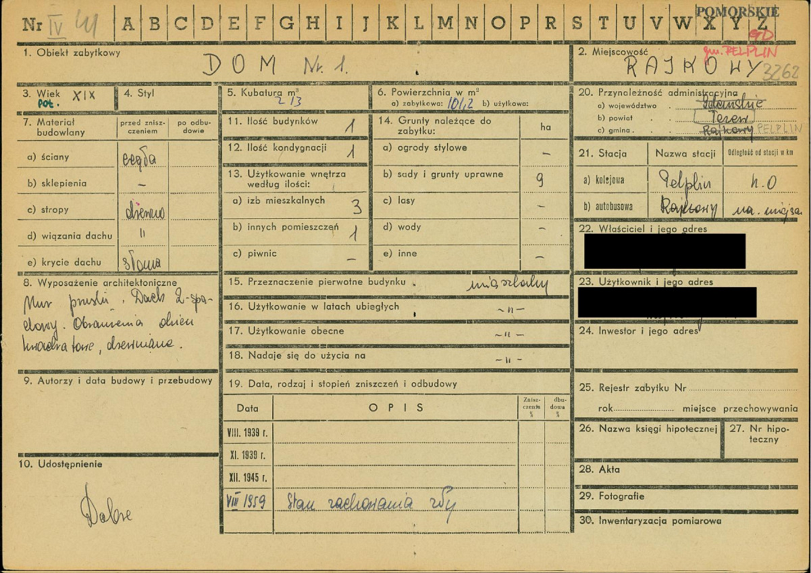 POMORSKIE
Nr IV A B C D E F G H I J K L M N O P R S T U V W X Y Z
gm. PELPLIN
1. Obiekt zabytkowy
DOM Nr. 1.
2. Miejscowość
RAJKOWY 3262
3. Wiek XIX
poł.
4. Styl
5. Kubatura m³
213
6. Powierzchnia w m²
a) zabytkowa: b) użytkowa:
20. Przynależność administracyjna
a) województwo Gdańskie
b) powiat Tczew
c) gmina Rajkowy PELPLIN
7. Materiał budowlany
przed zniszczeniem
po odbudowie
a) ściany cegła
b) sklepienia –
c) stropy drewno
d) wiązania dachu "
e) krycie dachu słoma
11. Ilość budynków 1
12. Ilość kondygnacji 1
13. Użytkowanie wnętrza według ilości:
a) izb mieszkalnych 3
b) innych pomieszczeń 1
c) piwnic –
14. Grunty należące do zabytku:
ha
a) ogrody stylowe –
b) sady i grunty uprawne 9
c) lasy –
d) wody –
e) inne –
21. Stacja
Nazwa stacji
Odległość od stacji w km
a) kolejowa Pelplin 4.0
b) autobusowa Rajkowy na miejsc.
22. Właściciel i jego adres
23. Użytkownik i jego adres
24. Inwestor i jego adres
8. Wyposażenie architektoniczne
Mur pruski. Dach 2-spa-
dowy. Obramienia okien
kwadratowe, drewniane.
15. Przeznaczenie pierwotne budynku mieszkalny
16. Użytkowanie w latach ubiegłych -"-
17. Użytkowanie obecne -"-
18. Nadaje się do użycia na -"-
9. Autorzy i data budowy i przebudowy
19. Data, rodzaj i stopień zniszczeń i odbudowy
Data
OPIS
VIII. 1939 r.
XI. 1939 r.
XII. 1945 r.
VIII 1959 Stan zachowania zły
25. Rejestr zabytku Nr
rok miejsce przechowywania
26. Nazwa księgi hipotecznej
27. Nr hipoteczny
28. Akta
29. Fotografie
30. Inwentaryzacja pomiarowa
10. Udostępnienie
Dobre